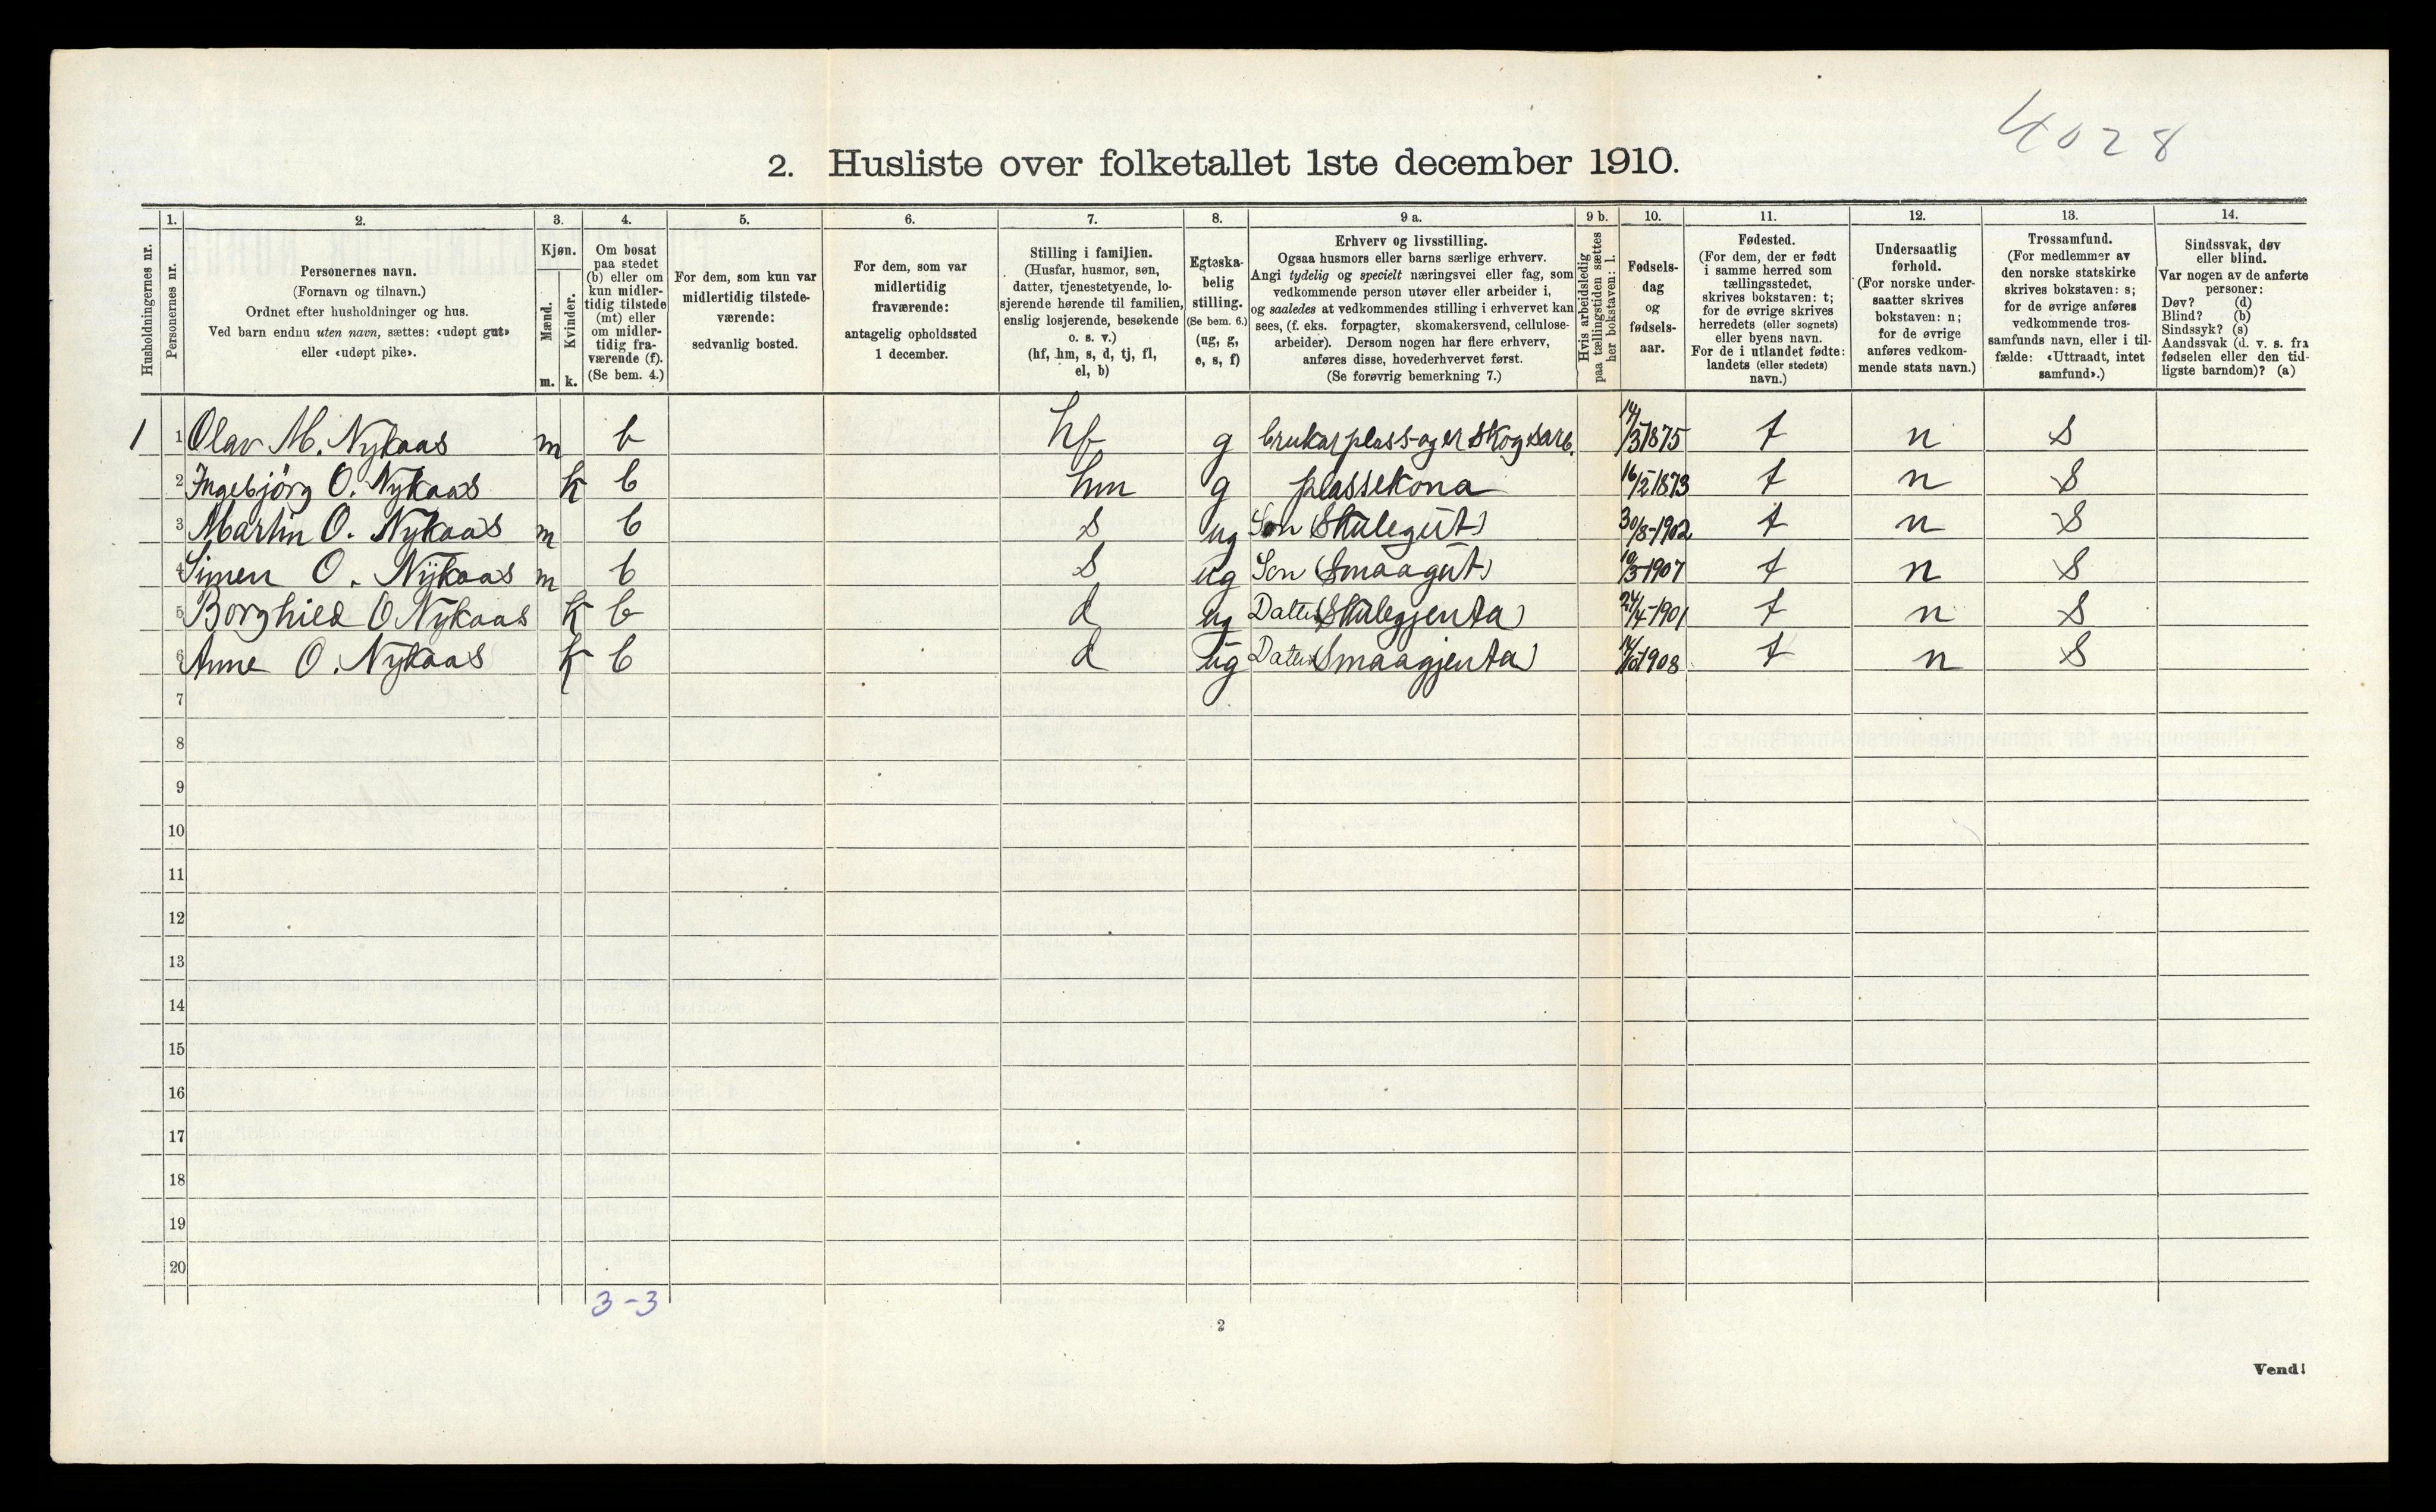 4028
2. Husliste over folketallet 1ste december 1910.
Husholdningernes nr.
1.
Personernes nr.
2.
Personernes navn.
(Fornavn og tilnavn.)
Ordnet efter husholdninger og hus.
Ved barn endnu uten navn, sættes: «udøpt gut»
eller «udøpt pike».
3.
Kjøn.
Mænd.
Kvinder.
m. k.
4.
Om bosat
paa stedet
(b) eller om
kun midler-
tidig tilstede
(mt) eller
om midler-
tidig fra-
værende (f).
(Se bem. 4.)
5.
For dem, som kun var
midlertidig tilstede-
værende:
sedvanlig bosted.
6.
For dem, som var
midlertidig
fraværende:
antagelig opholdssted
1 december.
7.
Stilling i familien.
(Husfar, husmor, søn,
datter, tjenestetyende, lo-
sjerende hørende til familien,
enslig losjerende, besøkende
o. s. v.)
(hf, hm, s, d, tj, fl,
el, b)
8.
Egteska-
belig
stilling.
(Se bem. 6.)
(ug, g,
e, s, f)
9 a.
Erhverv og livsstilling.
Ogsaa husmors eller barns særlige erhverv.
Angi tydelig og specielt næringsvei eller fag, som
vedkommende person utøver eller arbeider i,
og saaledes at vedkommendes stilling i erhvervet kan
sees, (f. eks. forpagter, skomakersvend, cellulose-
arbeider). Dersom nogen har flere erhverv,
anføres disse, hovederhvervet først.
(Se forøvrig bemerkning 7.)
9 b.
Hvis arbeidsledig
paa tællingstiden sættes
her bokstaven: l.
10.
Fødsels-
dag
og
fødsels-
aar.
11.
Fødested.
(For dem, der er født
i samme herred som
tællingsstedet,
skrives bokstaven: t;
for de øvrige skrives
herredets (eller sognets)
eller byens navn.
For de i utlandet fødte:
landets (eller stedets)
navn.)
12.
Undersaatlig
forhold.
(For norske under-
saatter skrives
bokstaven: n;
for de øvrige
anføres vedkom-
mende stats navn.)
13.
Trossamfund.
(For medlemmer av
den norske statskirke
skrives bokstaven: s;
for de øvrige anføres
vedkommende tros-
samfunds navn, eller i til-
fælde: «Uttraadt, intet
samfund».)
14.
Sindssvak, døv
eller blind.
Var nogen av de anførte
personer:
Døv? (d)
Blind? (b)
Sindssyk? (s)
Aandssvak (d. v. s. fra
fødselen eller den tid-
ligste barndom)? (a)
1 1 Olav M. Nykaas m b hf g brukar plass-og er skogsarb. 14/3 1875 t n s
2 Ingebjörg O. Nykaas k b hm g plassekona 16/2 1873 t n s
3 Martin O. Nykaas m b s ug Son (Skulegut) 30/8-1902 t n s
4 Simen O. Nykaas m b s ug Son (Smaagut) 10/3-1907 t n s
5 Borghild O Nykaas k b d ug Datter (Skulegjenta) 24/4-1901 t n s
6 Anne O. Nykaas k b d ug Datter (Smaagjenta) 1908 t n s
7
8
9
10
11
12
13
14
15
16
17
18
19
20
3-3
2
Vend!